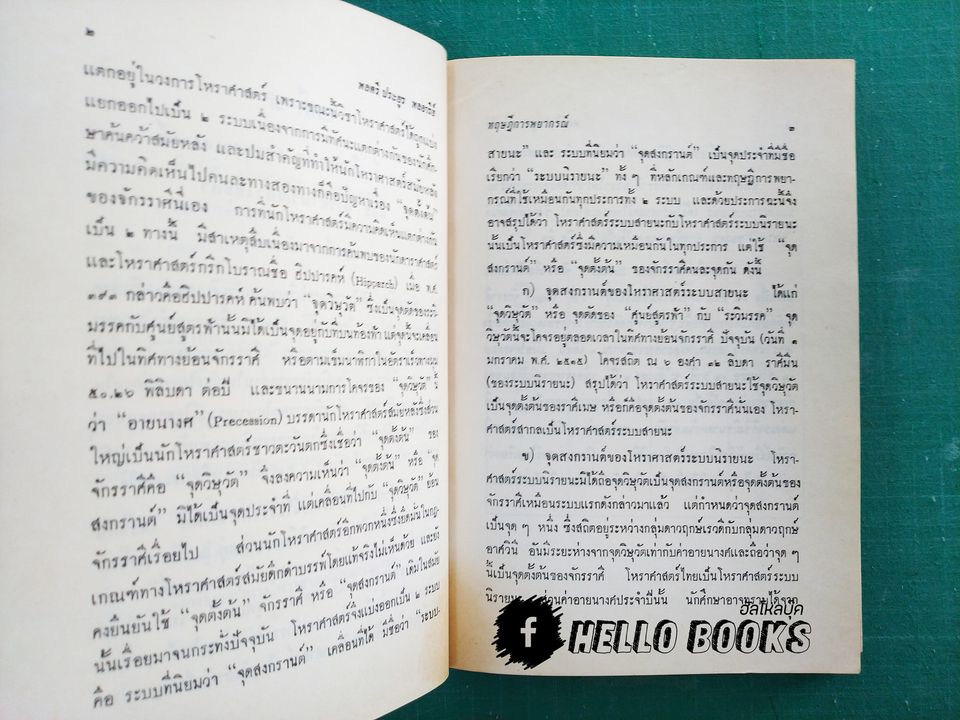 ๒
พลตรี ประยูร พลอารีย์
แตกอยู่ในวงการโหราศาสตร์ เพราะขณะนี้วิชาโหราศาสตร์ได้ถูกแบ่ง
แยกออกไปเป็น ๒ ระบบเนื่องจากการมีทัศนะแตกต่างกันของนักศึก-
ษาค้นคว้าสมัยหลัง และปมสำคัญที่ทำให้นักโหราศาสตร์สมัยหลัง
มีความคิดเห็นไปคนละทางสองทางก็คือปัญหาเรื่อง “จุดตั้งต้น”
ของจักรราศีนี่เอง การที่นักโหราศาสตร์มีความคิดเห็นแตกต่างกัน
เป็น ๒ ทางนี้ มีสาเหตุสืบเนื่องมาจากการค้นพบของนักดาราศาสตร์
และโหราศาสตร์กรีกโบราณชื่อ ฮิปปารคห์ (Hipparch) เมื่อ พ.ศ.
๓๙๓ กล่าวคือฮิปปารคห์ ค้นพบว่า “จุดวิษุวัต” ซึ่งเป็นจุดตัดของระวิ-
มรรคกับศูนย์สูตรฟ้านั้นมิได้เป็นจุดอยู่กับที่บนท้องฟ้า แต่จุดนี้จะเคลื่อน
ที่ไปในทิศทางย้อนจักรราศี หรือตามเข็มนาฬิกาในอัตราเร็วทางมุม
๕๐.๒๖ พิลิบดา ต่อปี และขนานนามการโคจรของ “จุดวิษุวัต” นี้
ว่า “อายนางศ” (Precession) บรรดานักโหราศาสตร์สมัยหลังซึ่งส่วน
ใหญ่เป็นนักโหราศาสตร์ชาวตะวันตกซึ่งเชื่อว่า “จุดตั้งต้น” ของ
จักรราศีคือ “จุดวิษุวัต” จึงลงความเห็นว่า “จุดตั้งต้น” หรือ “จุด
สงกรานต์” มิได้เป็นจุดประจำที่ แต่เคลื่อนที่ไปกับ “จุดวิษุวัต” ย้อน
จักรราศีเรื่อยไป ส่วนนักโหราศาสตร์อีกพวกหนึ่งซึ่งยึดมั่นในกฎ-
เกณฑ์ทางโหราศาสตร์สมัยดึกดำบรรพ์โดยแท้จริงไม่เห็นด้วย และยัง
คงยืนยันใช้ “จุดตั้งต้น” จักรราศี หรือ “จุดสงกรานต์” เดิมในสมัย
นั้นเรื่อยมาจนกระทั่งปัจจุบัน โหราศาสตร์จึงแบ่งออกเป็น ๒ ระบบ
คือ ระบบที่นิยมว่า “จุดสงกรานต์” เคลื่อนที่ได้ มีชื่อว่า “ระบบ-
ทฤษฎีการพยากรณ์
๓
สายนะ” และ ระบบที่นิยมว่า “จุดสงกรานต์” เป็นจุดประจำที่มีชื่อ
เรียกว่า “ระบบนิรายนะ” ทั้ง ๆ ที่หลักเกณฑ์และทฤษฎีการพยา-
กรณ์ที่ใช้เหมือนกันทุกประการทั้ง ๒ ระบบ และด้วยประการฉะนี้จึง
อาจสรุปได้ว่า โหราศาสตร์ระบบสายนะกับโหราศาสตร์ระบบนิรายนะ
นั้นเป็นโหราศาสตร์ซึ่งมีความเหมือนกันในทุกประการ แต่ใช้ “จุด
สงกรานต์” หรือ “จุดตั้งต้น” ของจักรราศีคนละจุดกัน ดังนี้
ก) จุดสงกรานต์ของโหราศาสตร์ระบบสายนะ ได้แก่
“จุดวิษุวัต” หรือ จุดตัดของ “ศูนย์สูตรฟ้า” กับ “ระวิมรรค” จุด
วิษุวัตนี้จะโคจรอยู่ตลอดเวลาในทิศทางย้อนจักรราศี ปัจจุบัน (วันที่ ๑
มกราคม พ.ศ. ๒๕๑๕) โคจรสถิต ณ ๖ องศา ๓๒ ลิบดา ราศีมีน
(ของระบบนิรายนะ) สรุปได้ว่า โหราศาสตร์ระบบสายนะใช้จุดวิษุวัต
เป็นจุดตั้งต้นของราศีเมษ หรือก็คือจุดตั้งต้นของจักรราศีนั่นเอง โหรา-
ศาสตร์สากลเป็นโหราศาสตร์ระบบสายนะ
ข) จุดสงกรานต์ของโหราศาสตร์ระบบนิรายนะ โหรา-
ศาสตร์ระบบนิรายนะมิได้ถือจุดวิษุวัตเป็นจุดสงกรานต์หรือจุดตั้งต้นของ
จักรราศีเหมือนระบบแรกดังกล่าวมาแล้ว แต่กำหนดว่าจุดสงกรานต์
เป็นจุด ๆ หนึ่ง ซึ่งสถิตอยู่ระหว่างกลุ่มดาวฤกษ์เรวดีกับกลุ่มดาวฤกษ์
อาศวินี อันมีระยะห่างจากจุดวิษุวัตเท่ากับค่าอายนางศและถือว่าจุด ๆ
นี้เป็นจุดตั้งต้นของจักรราศี โหราศาสตร์ไทยเป็นโหราศาสตร์ระบบ
นิรายนะ ส่วนค่าอายนางศ์ประจำปีนั้น นักศึกษาอาจทราบได้จาก
ฮัลโหลบุ๊ค
f HELLO BOOKS